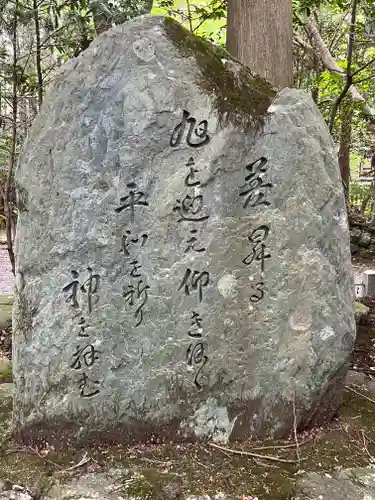 差昇る
旭を迎え仰き徒ゝ
平和を祈り
神を拝む